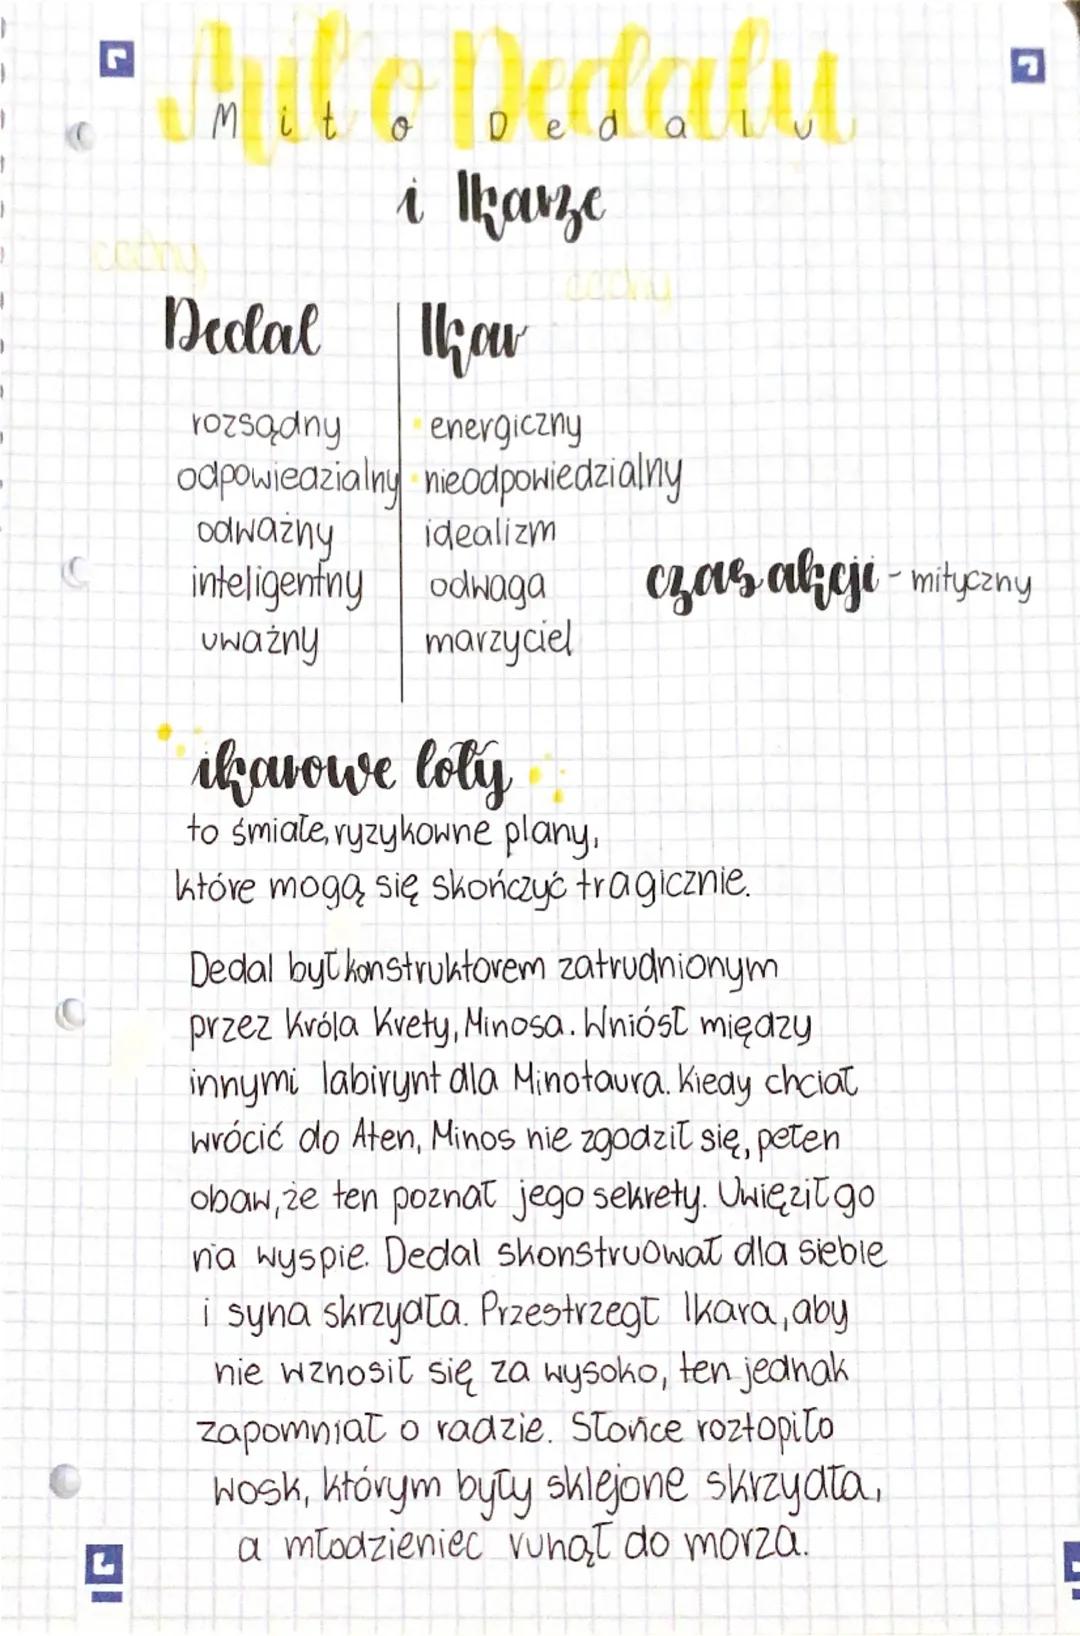 Mit o Dedalu
Mit o Dedalu
i Ikarze
cechy cechy
Dedal Ikar
rozsądny energiczny
odpowiedzialny nieodpowiedzialny
odważny idealizm
inteligentny odwaga
czas akcji - mityczny
uważny marzyciel
ikarowe loty
to śmiałe, ryzykowne plany,
które mogą się skończyć tragicznie.
Dedal był konstruktorem zatrudnionym
przez Króla Krety, Minosa. Wniósł między
innymi labirynt dla Minotaura. Kiedy chciał
wrócić do Aten, Minos nie zgodził się, pełen
obaw, że ten poznał jego sekrety. Uwięził go
na wyspie. Dedal skonstruował dla siebie
i syna skrzydła. Przestrzegł Ikara, aby
nie wznosił się za wysoko, ten jednak
zapomniał o radzie. Słońce roztopiło
wosk, którym były sklejone skrzydła,
a młodzieniec runął do morza.